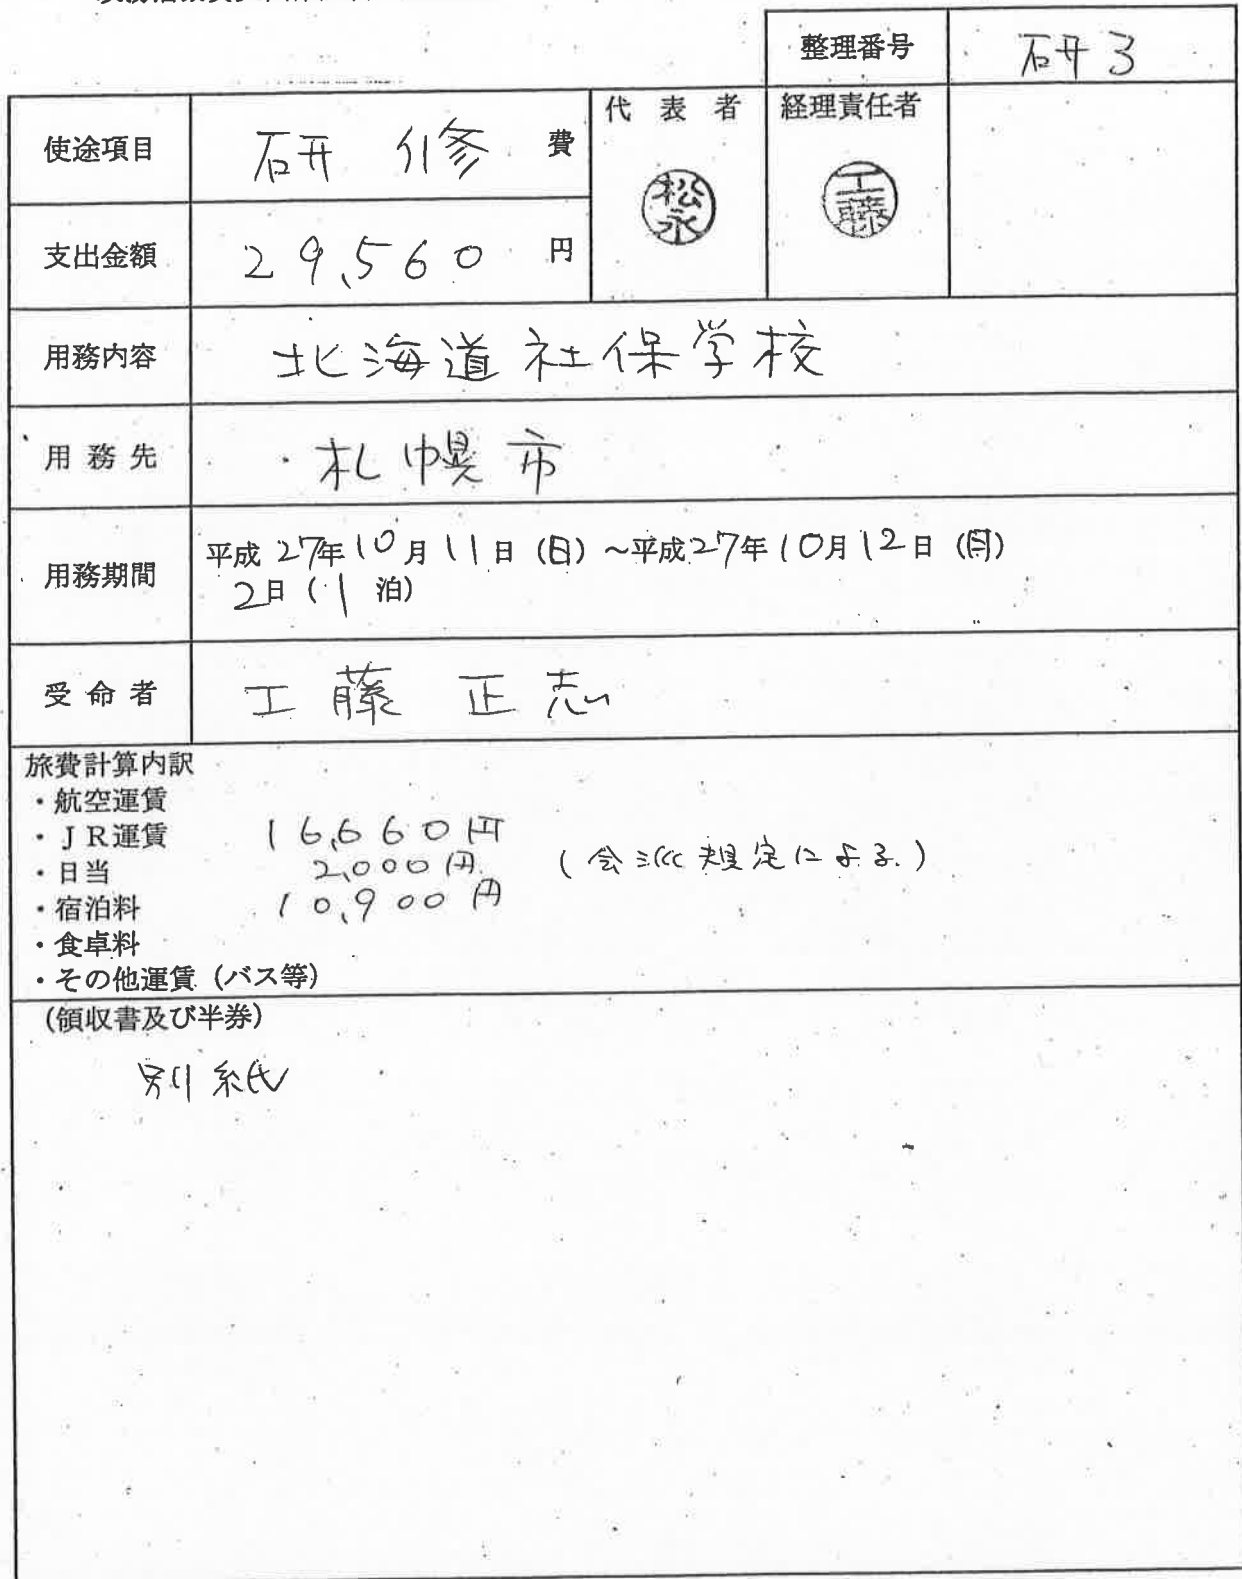 整理番号 研3
使途項目 研修 費
代表者 松永
経理責任者 工藤
支出金額 29,560 円
用務内容 北海道社保学校
用務先 ・札幌市
用務期間 平成27年10月11日(日)~平成27年10月12日(月)
2日(1泊)
受命者 工藤 正志
旅費計算内訳
・航空運賃
・JR運賃 16,660円
・日当 2,000円 (会派規定による。)
・宿泊料 10,900円
・食卓料
・その他運賃(バス等)
(領収書及び半券)
別紙